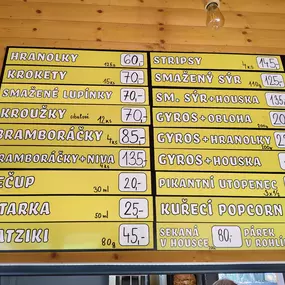 HRANOLKY 60,-
KROKETY 15ks 70,-
SMAŽENÉ LUPÍNKY 70,-
KROUŽKY cibulové 12ks 70,-
BRAMBORÁČKY 4ks 85,-
BRAMBORÁČKY+NIVA 4ks 135,-
EČUP 30ml 20,-
TARKA 50ml 25,-
ATZIKI 80g 45,-
STRIPSY 4ks 145,-
SMAŽENÝ SÝR 110g 125,-
SM. SÝR+HOUSKA 135
GYROS+OBLOHA 200
GYROS+HRANOLKY 25
GYROS+HOUSKA
PIKANTNÍ UTOPENEC
KUŘECÍ POPCORN
SEKANÁ V HOUSCE 80,- PÁREK V ROHLÍ